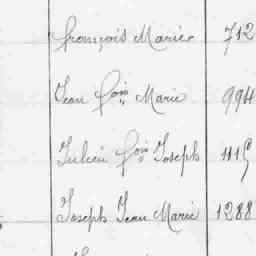 françois Marie 712
Jean fois Marie 994
Julien fois Joseph 1115
Joseph Jean Marie 1288